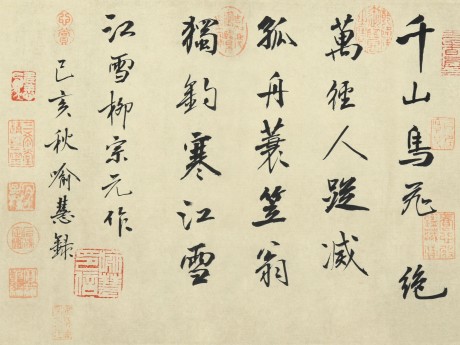 千山鳥飛絶
萬徑人蹤滅
孤舟蓑笠翁
獨釣寒江雪
江雪柳宗元作
己亥秋喻慧録